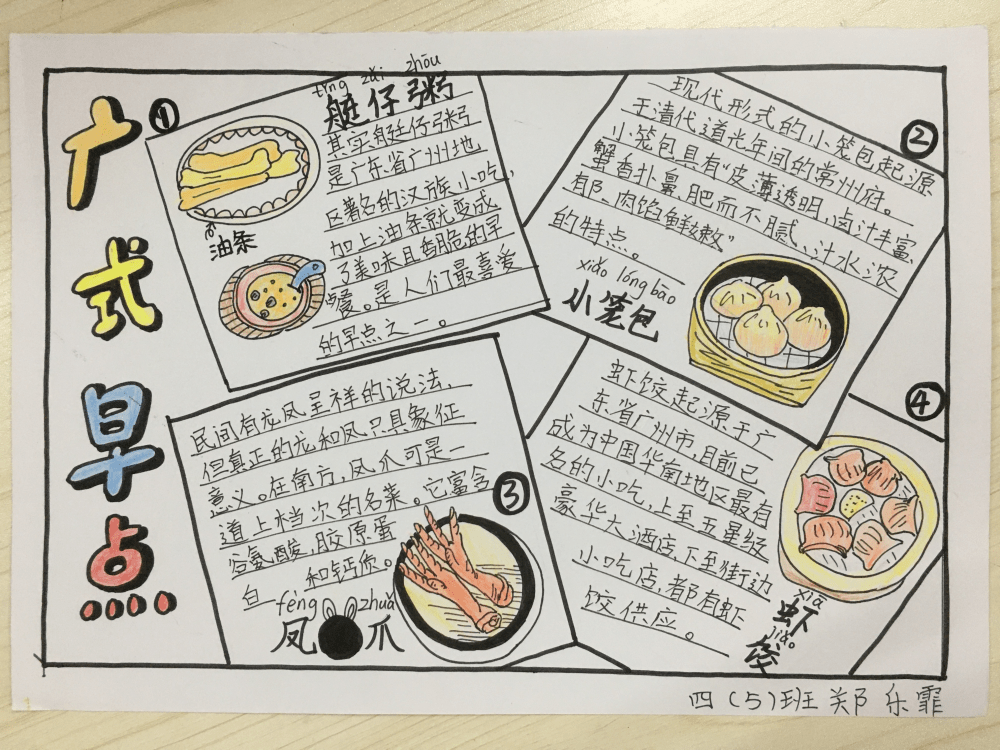 广式早点
①
tǐng zǎi zhōu
艇仔粥
其实艇仔粥
是广东省广州地
区著名的汉族小吃,
加上油条就变成
了美味且香脆的早
餐。是人们最喜爱
的早点之一。
油条
②
现代形式的小笼包起源
于清代道光年间的常州府。
小笼包具有"皮薄透明,卤汁丰富,
蟹香扑鼻,肥而不腻、汁水浓
郁、肉馅鲜嫩"
的特点。
xiǎo lóng bāo
小笼包
③
民间有龙凤呈祥的说法,
但真正的龙和凤只具象征
意义。在南方,凤爪可是一
道上档次的名菜。它富含
谷氨酸,胶原蛋
白 和钙质。
fèng zhuǎ
凤爪
④
虾饺起源于广
东省广州市,目前已
成为中国华南地区最有
名的小吃,上至五星级
豪华大酒店,下至街边
小吃店,都有虾
饺供应。
xiā
虾
jiǎo
饺
四(5)班 郑乐霏